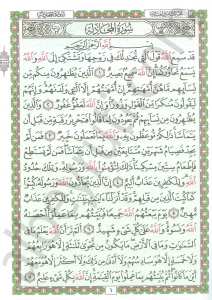 سُورَةُ المُجَادلة
بِسْمِ اللَّهِ الرَّحْمَٰنِ الرَّحِيمِ
قَدْ سَمِعَ اللَّهُ قَوْلَ الَّتِي تُجَادِلُكَ فِي زَوْجِهَا وَتَشْتَكِي إِلَى اللَّهِ وَاللَّهُ
يَسْمَعُ تَحَاوُرَكُمَا إِنَّ اللَّهَ سَمِيعٌ بَصِيرٌ ١ الَّذِينَ يُظَاهِرُونَ مِنكُم مِّن
نِّسَائِهِم مَّا هُنَّ أُمَّهَاتِهِمْ إِنْ أُمَّهَاتُهُمْ إِلَّا اللَّائِي وَلَدْنَهُمْ وَإِنَّهُمْ
لَيَقُولُونَ مُنكَرًا مِّنَ الْقَوْلِ وَزُورًا وَإِنَّ اللَّهَ لَعَفُوٌّ غَفُورٌ ٢ وَالَّذِينَ
يُظَاهِرُونَ مِن نِّسَائِهِمْ ثُمَّ يَعُودُونَ لِمَا قَالُوا فَتَحْرِيرُ رَقَبَةٍ مِّن قَبْلِ أَن
يَتَمَاسَّا ذَٰلِكُمْ تُوعَظُونَ بِهِ وَاللَّهُ بِمَا تَعْمَلُونَ خَبِيرٌ ٣ فَمَن لَّمْ
يَجِدْ فَصِيَامُ شَهْرَيْنِ مُتَتَابِعَيْنِ مِن قَبْلِ أَن يَتَمَاسَّا فَمَن لَّمْ يَسْتَطِعْ
فَإِطْعَامُ سِتِّينَ مِسْكِينًا ذَٰلِكَ لِتُؤْمِنُوا بِاللَّهِ وَرَسُولِهِ وَتِلْكَ حُدُودُ
اللَّهِ وَلِلْكَافِرِينَ عَذَابٌ أَلِيمٌ ٤ إِنَّ الَّذِينَ يُحَادُّونَ اللَّهَ وَرَسُولَهُ كُبِتُوا
كَمَا كُبِتَ الَّذِينَ مِن قَبْلِهِمْ وَقَدْ أَنزَلْنَا آيَاتٍ بَيِّنَاتٍ وَلِلْكَافِرِينَ
عَذَابٌ مُّهِينٌ ٥ يَوْمَ يَبْعَثُهُمُ اللَّهُ جَمِيعًا فَيُنَبِّئُهُم بِمَا عَمِلُوا أَحْصَاهُ
اللَّهُ وَنَسُوهُ وَاللَّهُ عَلَىٰ كُلِّ شَيْءٍ شَهِيدٌ ٦ أَلَمْ تَرَ أَنَّ اللَّهَ يَعْلَمُ مَا فِي
السَّمَاوَاتِ وَمَا فِي الْأَرْضِ مَا يَكُونُ مِن نَّجْوَىٰ ثَلَاثَةٍ إِلَّا هُوَ رَابِعُهُمْ
وَلَا خَمْسَةٍ إِلَّا هُوَ سَادِسُهُمْ وَلَا أَدْنَىٰ مِن ذَٰلِكَ وَلَا أَكْثَرَ إِلَّا هُوَ مَعَهُمْ
أَيْنَ مَا كَانُوا ثُمَّ يُنَبِّئُهُم بِمَا عَمِلُوا يَوْمَ الْقِيَامَةِ إِنَّ اللَّهَ بِكُلِّ شَيْءٍ عَلِيمٌ ٧